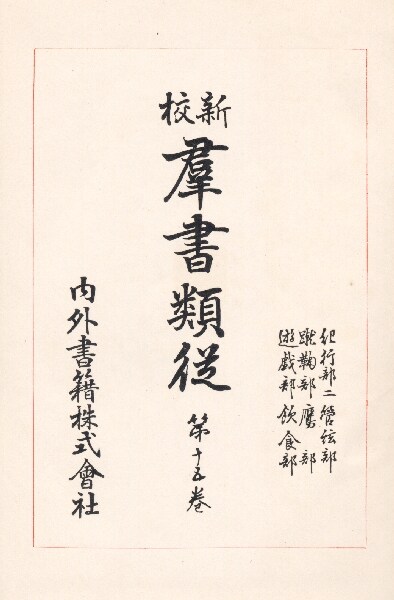 紀行部二管絃部
蹴鞠部鷹部
遊戯部飲食部
新校
羣書類従
第十五巻
内外書籍株式會社